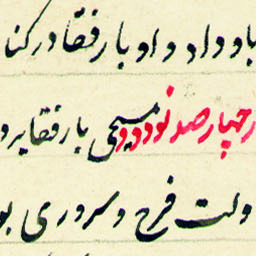 باو داد و او با رفقا در کنا
رچهارصد نود و دو مسیحی با رفقا برو
ولت فرح و سروری بو